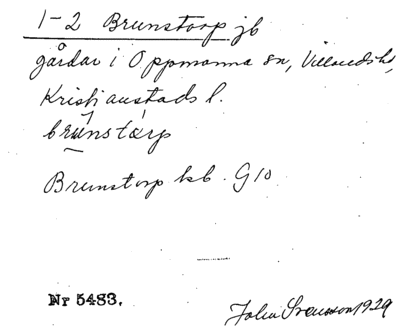 1-2 Brunstorp jb
gårdar i Oppmanna sn, Villands hd,
Kristianstads l.
brunstarp
Brunstorp kb. G10
Nr 5483.
John Svensson 1929